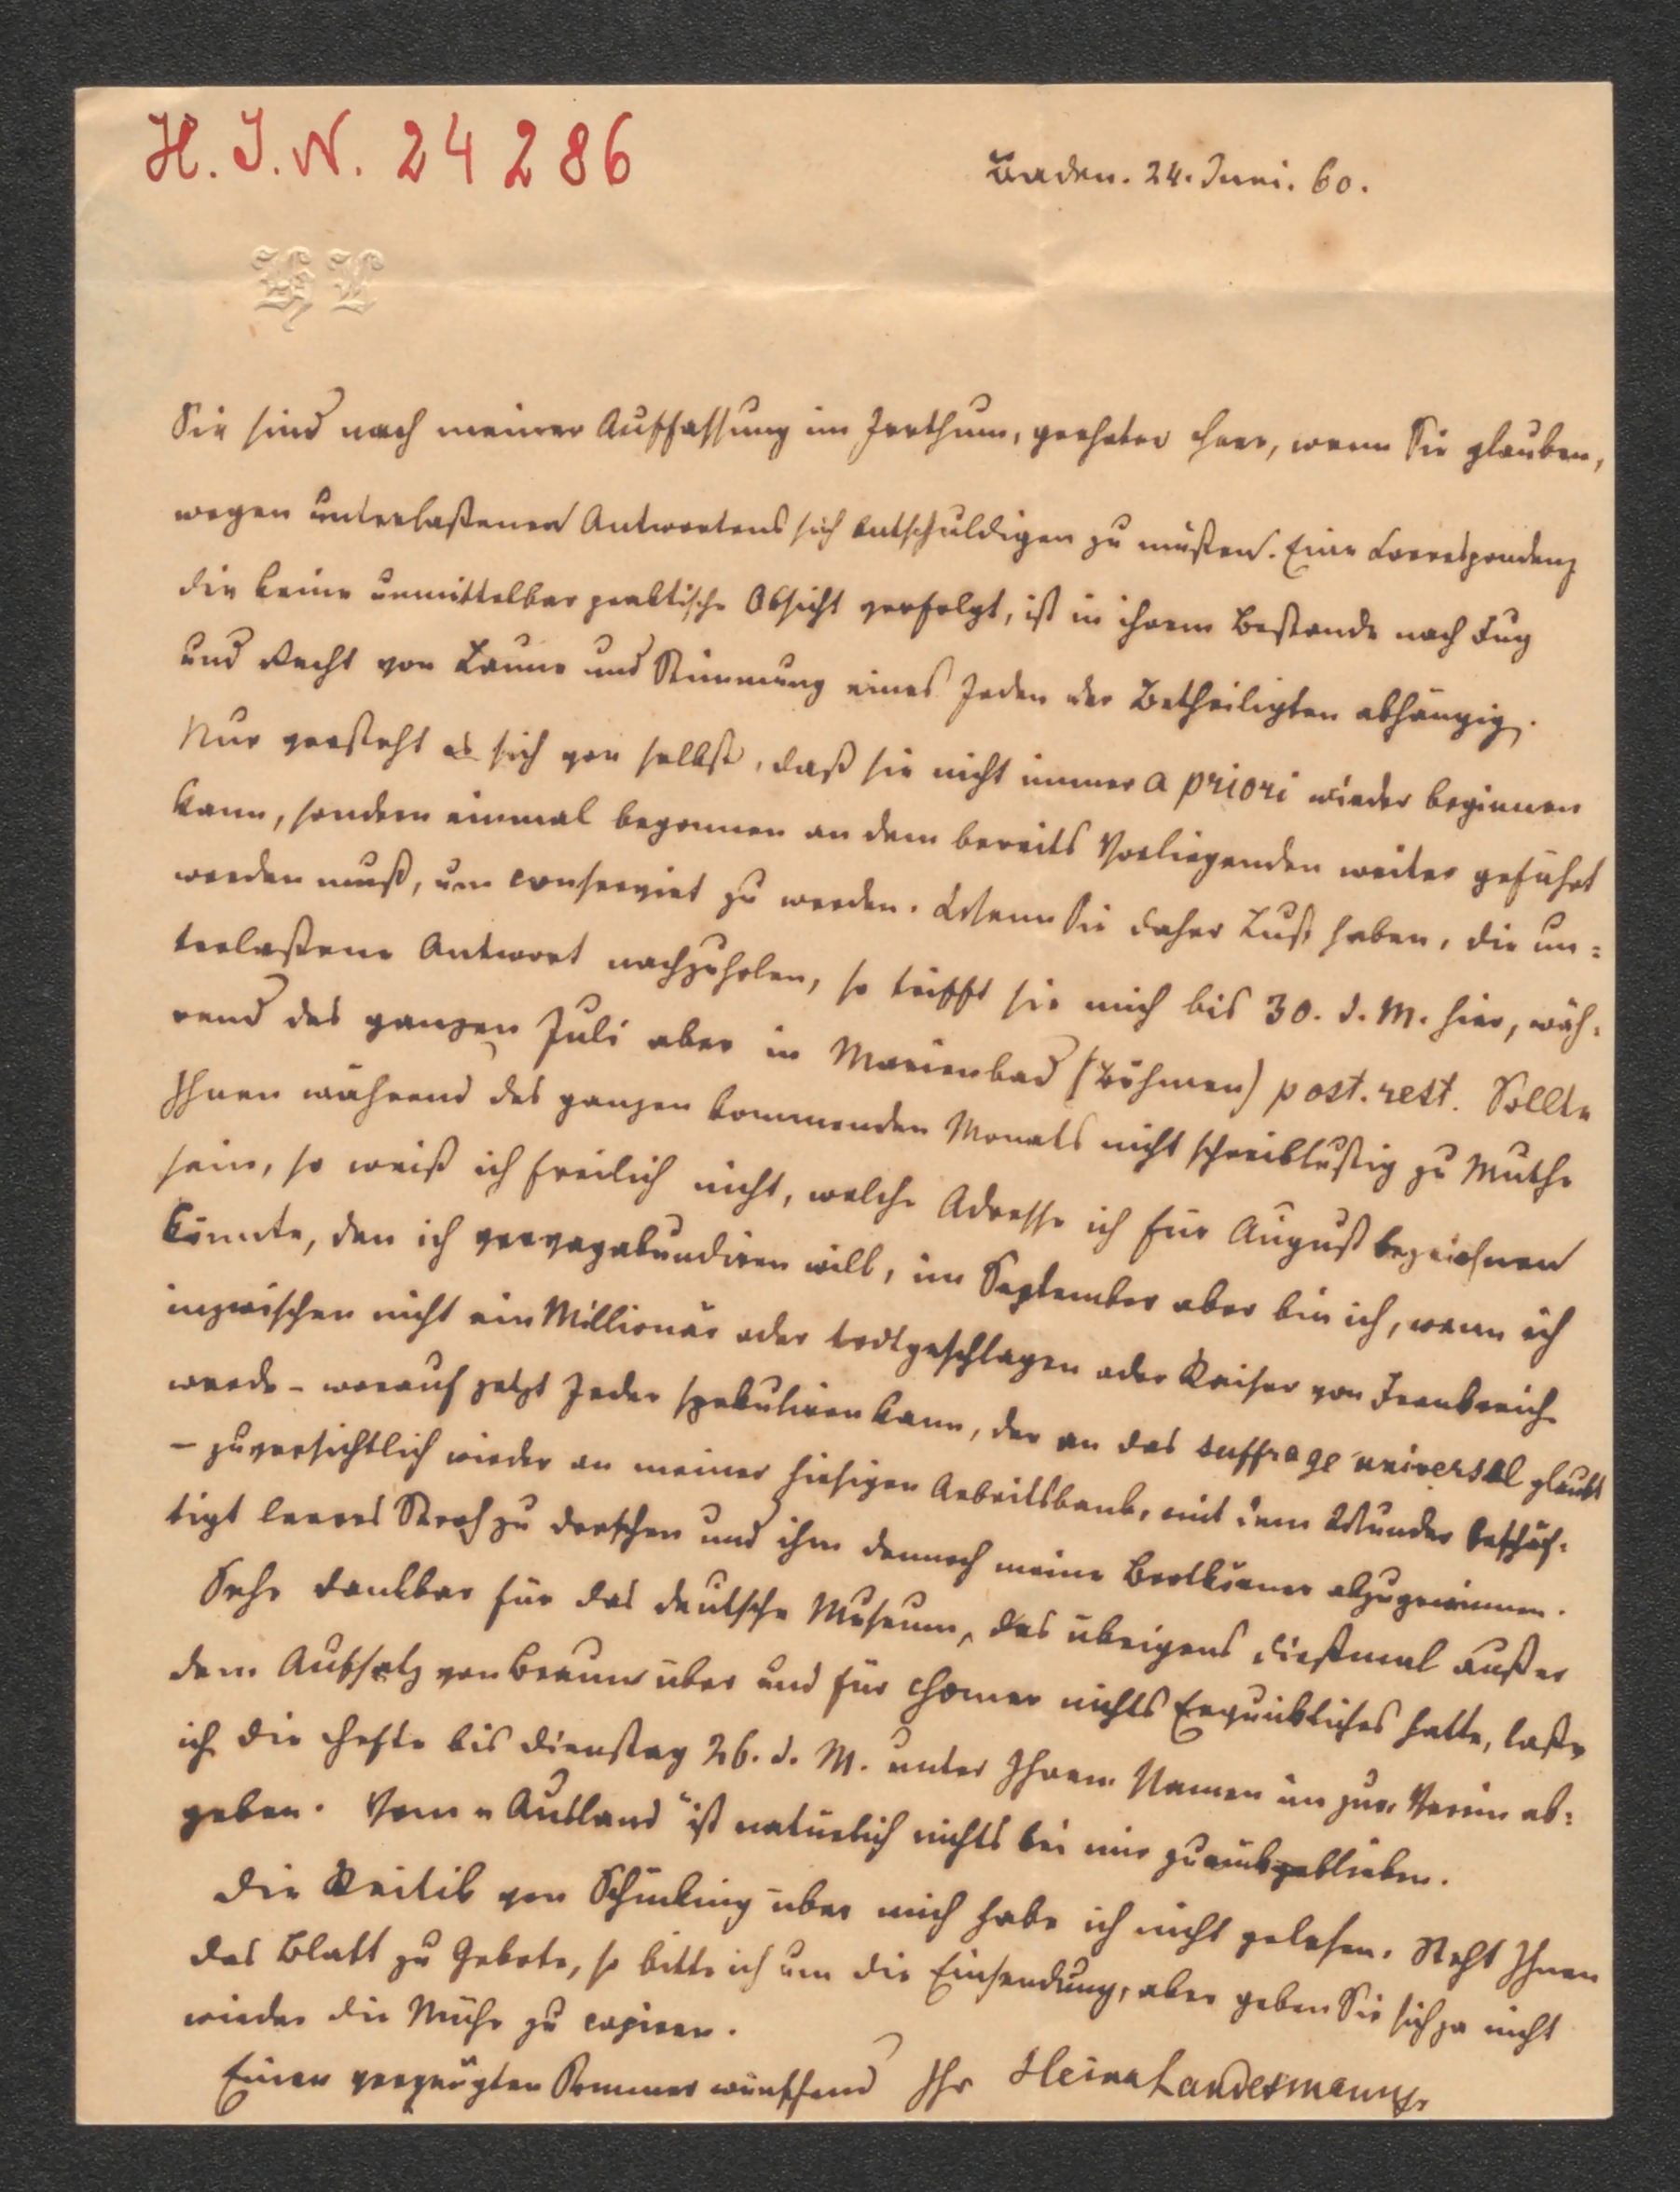 H. I. N. 24 286
Baden. 24. Juni. 60.
HL
Sie sind nach meiner Auffassung im Irrthum, geehrter Herr, wenn Sie glauben,
wegen unterlaßenen Antwortens sich entschuldigen zu müßen. Eine Correspondenz
die keine unmittelbar praktische Absicht verfolgt, ist in ihrem Bestande nach Fug
und Recht von Laune und Stimmung eines Jeden der Betheiligten abhängig.
Nur versteht es sich von selbst, daß sie nicht immer a priori wieder beginnen
kann, sondern einmal begonnen an dem bereits Vorliegenden weiter geführt
werden muß, um conservirt zu werden. Wenn Sie daher Lust haben, die un=
terlaßene Antwort nachzuholen, so trifft sie mich bis 30. d. M. hier, wäh=
rend des ganzen Juli aber in Marienbad (Böhmen) post. rest. Sollte
Ihnen während des ganzen kommenden Monats nicht schreiblustig zu Muthe
sein, so weiß ich freilich nicht, welche Adresse ich für August bezeichnen
könnte, den ich vervagabundiren will, im September aber bin ich, wenn ich
inzwischen nicht ein Millionär oder todtgeschlagen oder Kaiser von Frankreich
werde – worauf jetzt Jeder spekuliren kann, der an das suffrage universal glaubt
– zuversichtlich wieder an meiner hiesigen Arbeitsbank, mit dem Wunder beschäf=
tigt leeres Stroh zu dreschen und ihm dennoch meine Brotkörner abzugewinnen.
Sehr dankbar für das deutsche Museum, das übrigens dießmal außer
dem Aufsatz von Braun über und für Homer nichts Erquickliches hatte, laße
ich die Hefte bis Dienstag 26. d. M. unter Ihrem Namen im jur. Verein ab=
geben. Vom „Ausland" ist natürlich nichts bei mir zurückgeblieben.
Die Kritik von Schücking über mich habe ich nicht gelesen. Steht Ihnen
das Blatt zu Gebote, so bitte ich um die Einsendung, aber geben Sie sich ja nicht
wieder die Mühe zu copiren.
Einen vergnügten Sommer wünschend Ihr Heinr Landesmann